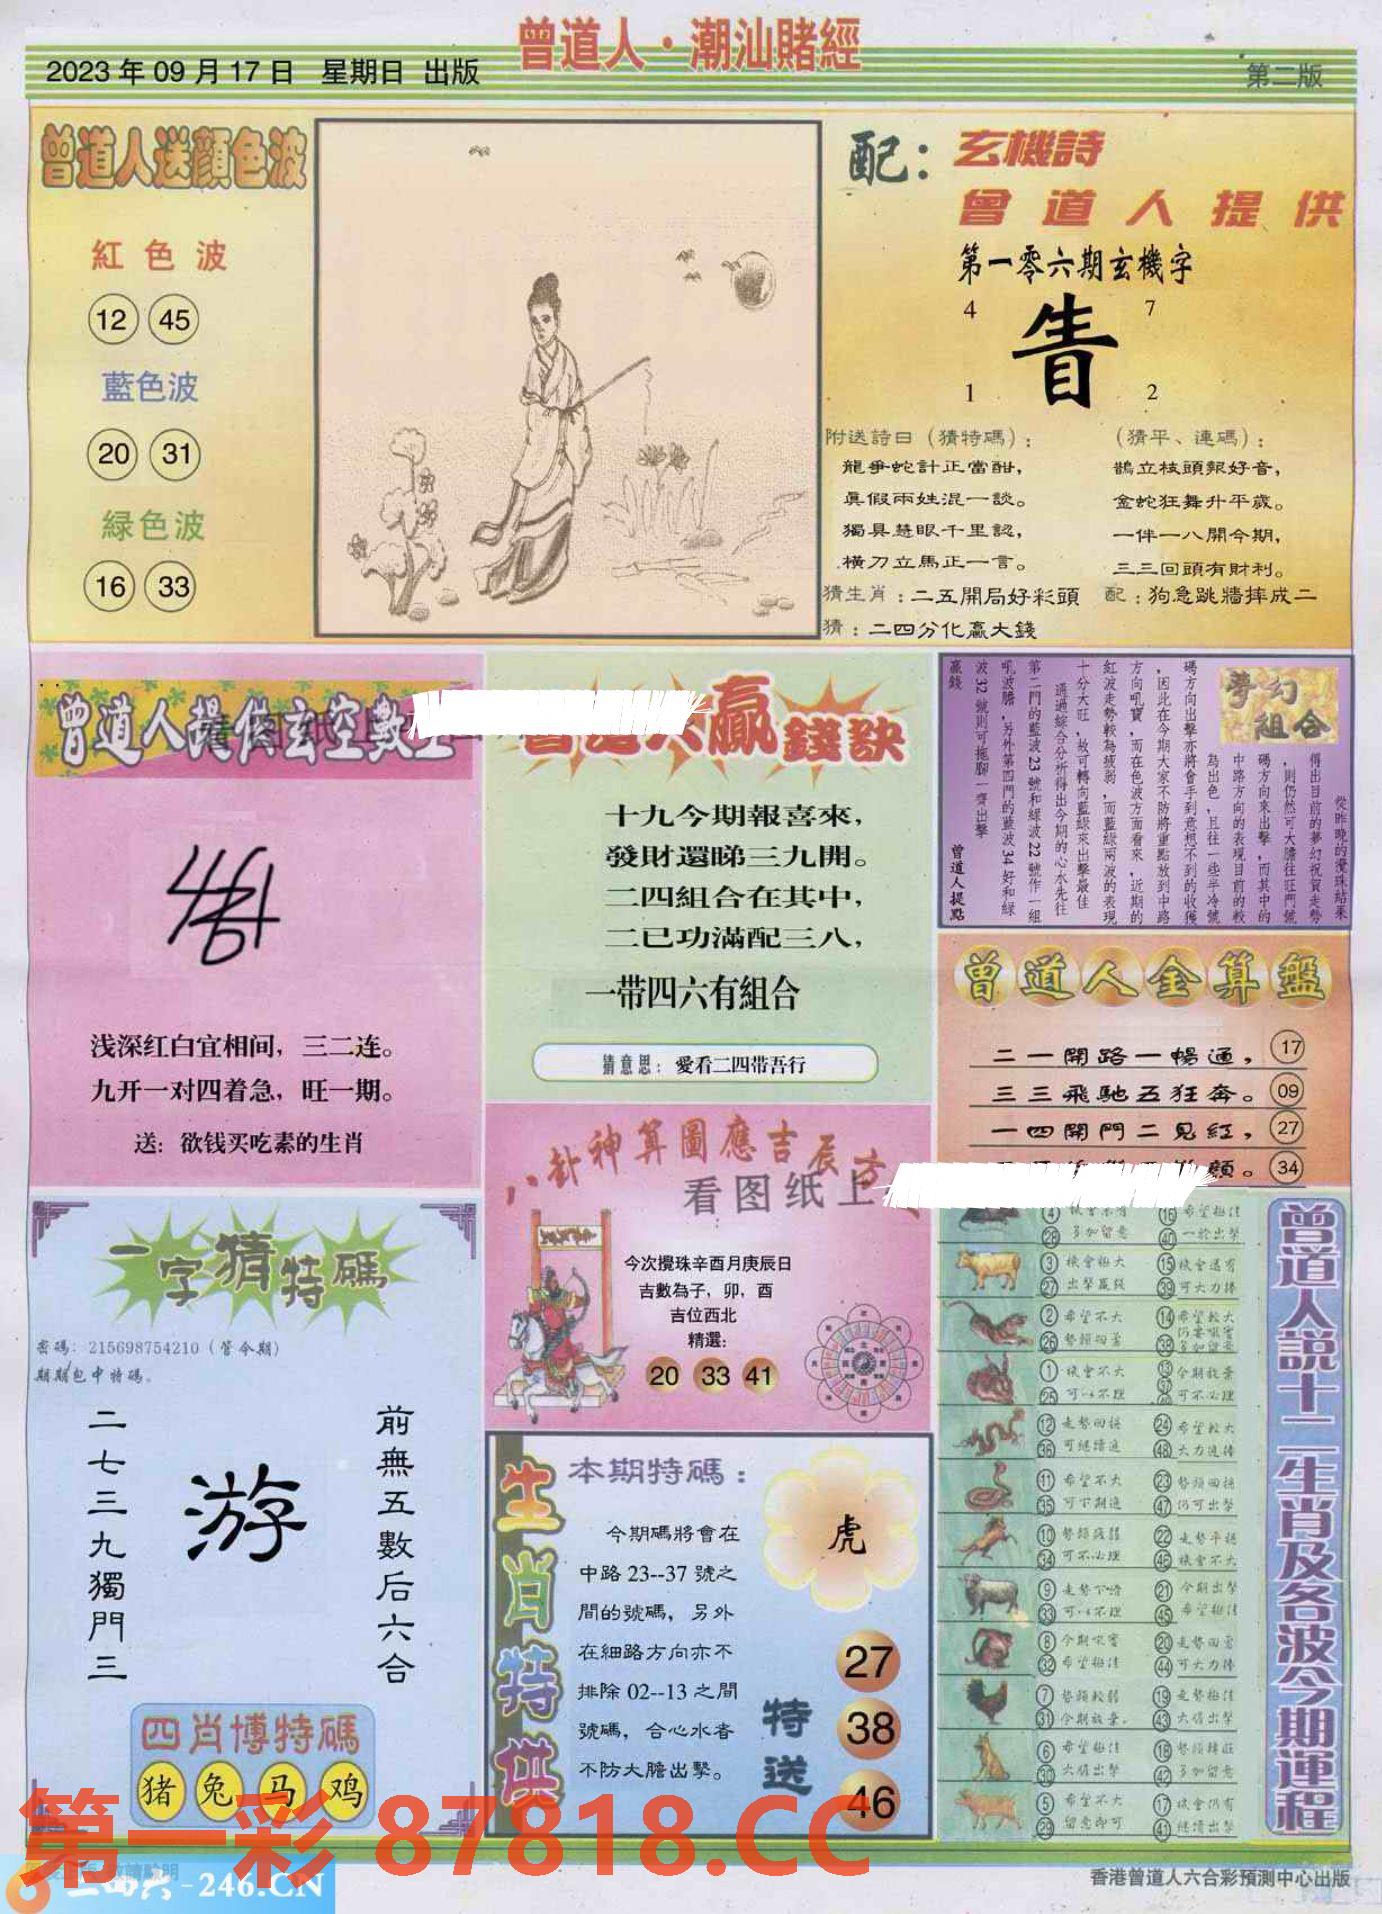 曾道人·潮汕賭經
2023年09月17日 星期日 出版
第二版
曾道人送顏色波
紅色波
12 45
藍色波
20 31
緑色波
16 33
配：玄機詩
曾道人提供
第一零六期玄機字
4 7
1 2
附送詩曰（猜特碼）：
龍爭蛇計正當酣，
眞假兩姓混一談。
獨具慧眼千里認，
橫刀立馬正一言。
猜生肖：二五開局好彩頭
猜：二四分化贏大錢
（猜平、連碼）：
鵲立枝頭報好音，
金蛇狂舞升平歲。
一伴一八開今期，
三三回頭有財利。
配：狗急跳牆摔成二
浅深红白宜相间，三二连。
九开一对四着急，旺一期。
送：欲钱买吃素的生肖
贏錢訣
十九今期報喜來，
發財還睇三九開。
二四組合在其中，
二已功滿配三八，
一带四六有組合
猜意思：愛看二四带吾行
夢幻組合
從昨晚的攪珠結果
得出目前的夢幻祝賀走勢
，則仍然可大膽往旺門號
碼方向來出擊，而其中的
中路方向的表現目前的較
為出色，且往一些半冷號
碼方向出擊亦將會手到意想不到的收獲
，因此在今期大家不防將重點放到中路
方向吼寶，而在色波方面看來，近期的
紅波走勢較為疲弱，而藍綠兩波的表現
十分大旺，故可轉向藍綠來出擊最佳
通過綜合分析得出今期的心水先往
第二門的藍波23號和綠波22號作一組
吼波膽，另外第四門的藍波34好和綠
波32號則可拖腳一齊出擊
贏錢
曾道人提點
曾道人金算盤
二一開路一暢通， 17
三三飛馳五狂奔。 09
一四開門二見紅， 27
顏。 34
八卦神算圖應吉辰方
看图纸上
今次攪珠辛酉月庚辰日
吉數為子，卯，酉
吉位西北
精選：
20 33 41
一字猜特碼
密碼：215698754210（管今期）
期期包中特碼。
前無五數后六合
游
二七三九獨門三
四肖博特碼
猪 兔 马 鸡
生肖特供
本期特碼：
今期碼將會在
中路23--37號之
間的號碼，另外
在細路方向亦不
排除02--13之間
號碼，合心水者
不防大膽出擊。
虎
特送
27
38
46
曾道人説十二生肖及各波今期運程
4 16 希望極佳
28 多加留意 40 一於出擊
3 機會極大 15 機會還有
27 出擊贏錢 39 可大力捧
2 希望不大 14 希望較大
26 勢頭回落 38
1 機會不大 13 今期放棄
25 可以不理 37 可不必理
12 走勢回揚 24 希望較大
36 可繼續追 48 大力追捧
11 希望不大 23 勢頭回揚
35 可下期追 47 仍可出擊
10 勢頭疲弱 22 走勢平穩
34 可不必理 46 機會不大
9 走勢下滑 21 今期出擊
33 可以不理 45 希望極佳
8 今期吼實 20 走勢回勇
32 希望極佳 44 可大力捧
7 勢頭較弱 19 走勢極佳
31 今期放棄 43 大膽出擊
6 希望極佳 18 勢頭轉旺
30 大膽出擊 42 多加留意
5 希望不大 17 機會仍有
29 留意即可 41 繼續出擊
第一彩 87818.CC
二四六-246.CN
香港曾道人六合彩預測中心出版